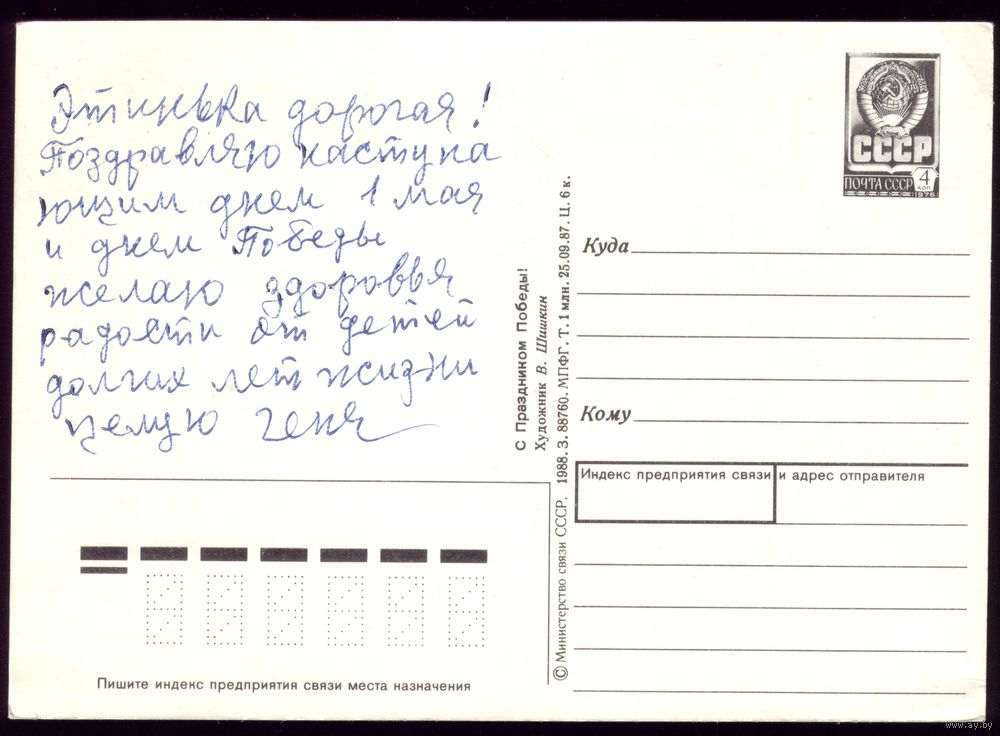 Этинька дорогая!
Поздравляю наступа
ющим днем 1 мая
и днем Победы
желаю здоровья
радости от детей
долгих лет жизни
целую Геня
СССР
ПОЧТА СССР
4
КОП
1976
Куда
Кому
Индекс предприятия связи и адрес отправителя
С Праздником Победы!
Художник В. Шишкин
© Министерство связи СССР. 1988. З. 88760. МПФГ. Т. 1 млн. 25.09.87. Ц. 6 к.
Пишите индекс предприятия связи места назначения
www.ay.by